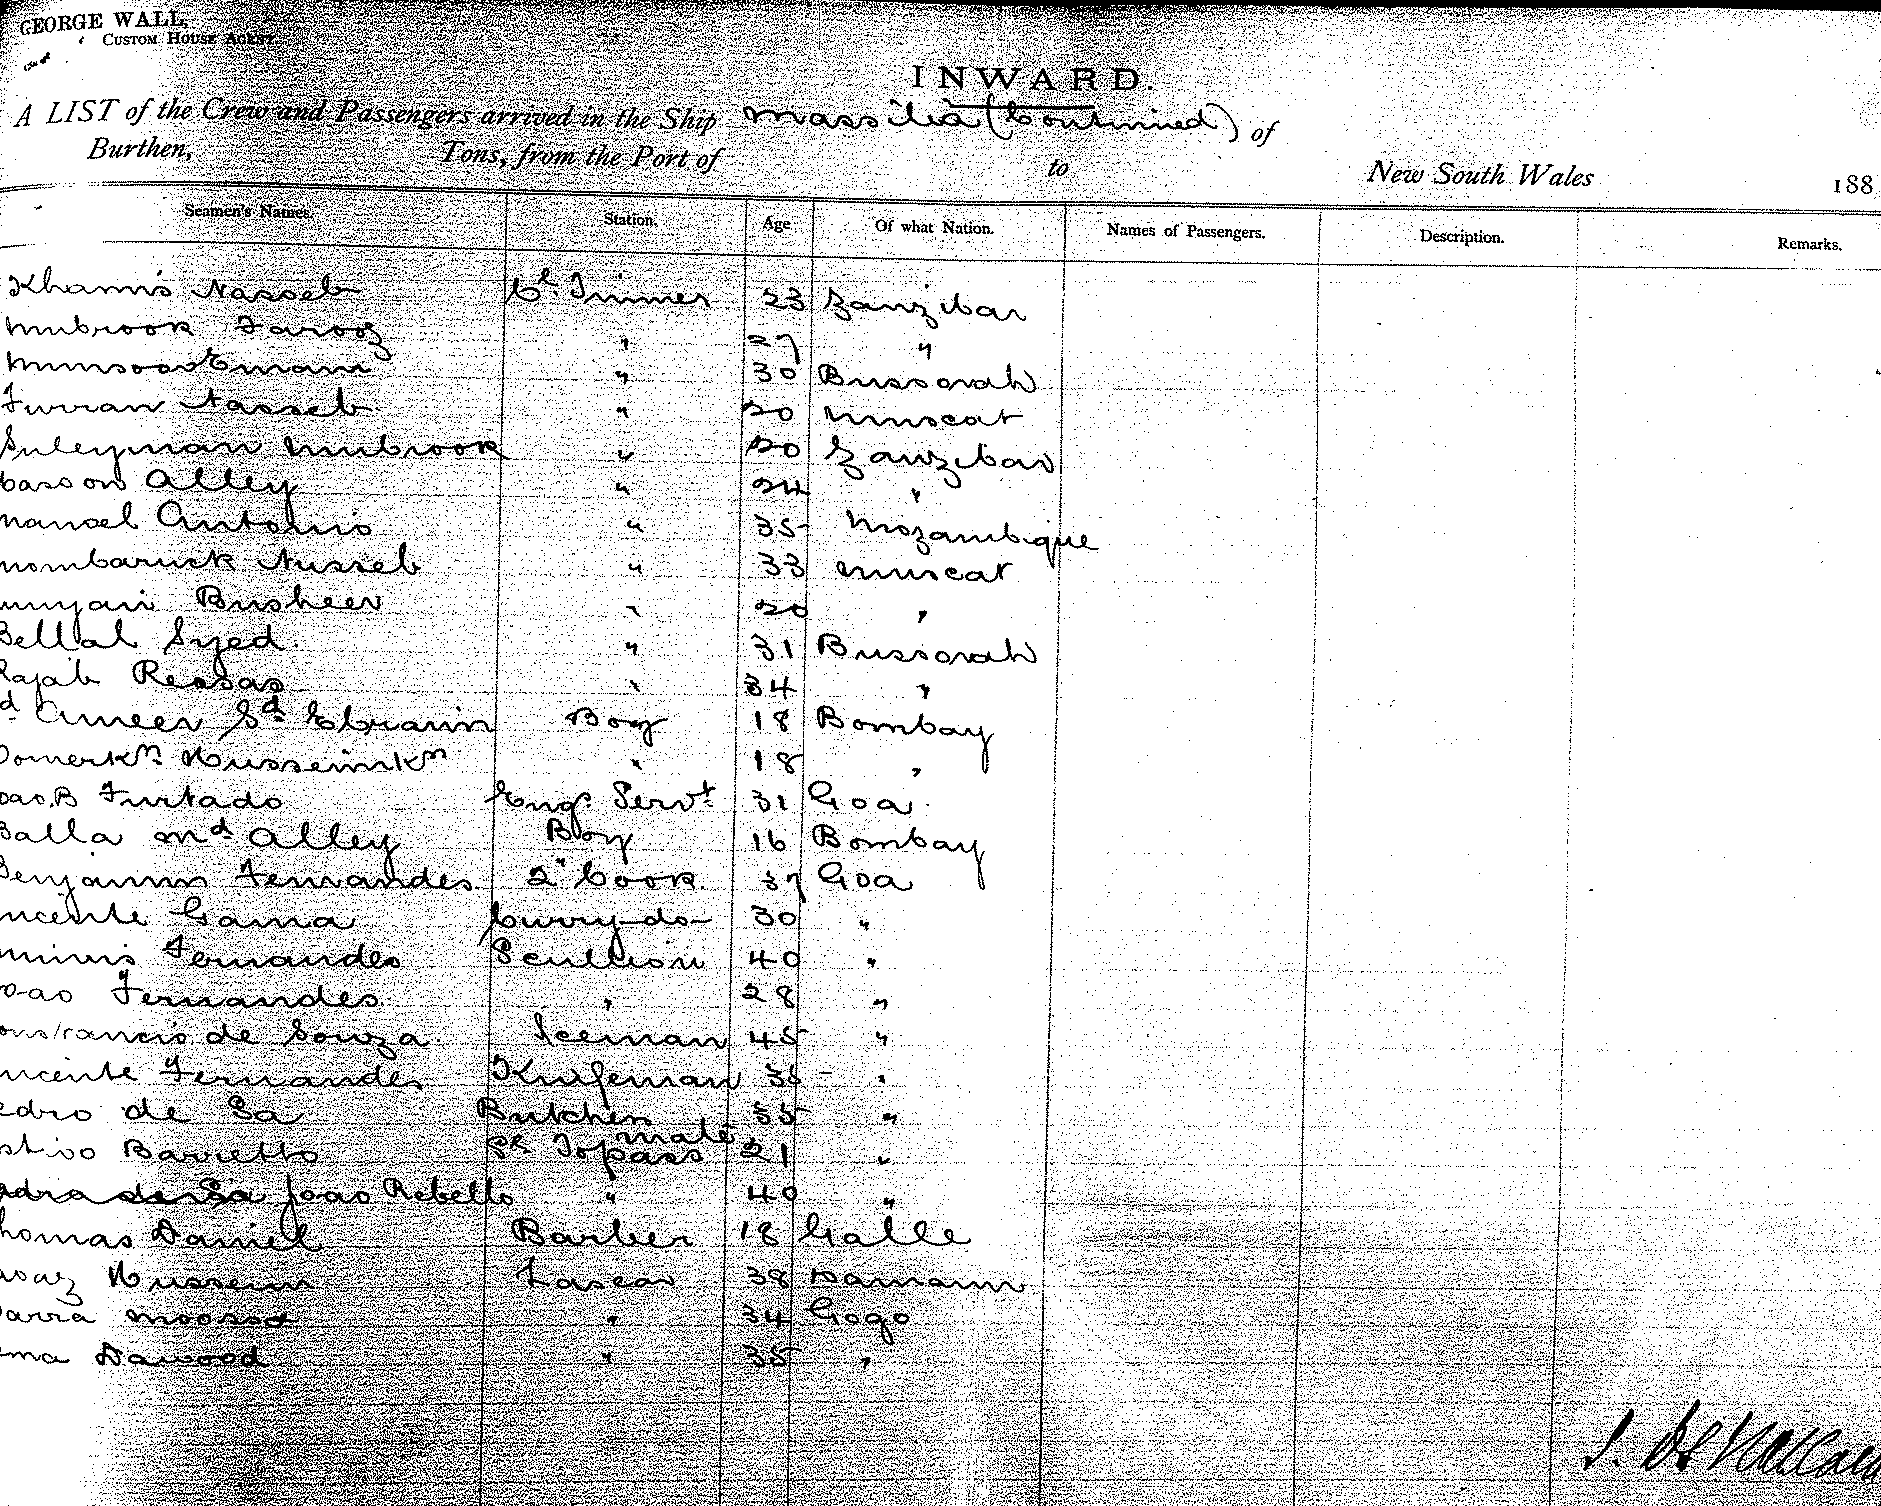 GEORGE WALL,
CUSTOM HOUSE AGENT
INWARD.
A LIST of the Crew and Passengers arrived in the Ship Massilia (Continued) of
Burthen, Tons, from the Port of to New South Wales 188
Seamen's Names. Station. Age Of what Nation. Names of Passengers. Description. Remarks.
Khamis Nasseb Cl. Trimmer 23 Zanzibar
Mubrook Farooz " 27 "
Munsoor Emam " 30 Bussorah
Furran Nasseb " 20 Muscat
Suleyman Mubrook " 20 Zanzibar
Alley " 24 "
Manoel Antonio " 35 Mozambique
Mombaruck Nusseb " 33 Muscat
Busheer " 20 "
Bellal Syed " 31 Bussorah
Rajab Ressas " 34 "
Ameer Sd. Ebraim Boy 18 Bombay
Oomerkn. Husseinkn " 18 "
Joao B Furtado Engs. Servt. 31 Goa
Balla Md Alley Boy 16 Bombay
Benjamin Fernandes 2" Cook 37 Goa
Vincente Gama Curry-do- 30 "
Fernandes Scullion 40 "
Joao Fernandes " 28 "
Constrancio de Souza Iceman 45 "
Vincente Fernandes Knifeman 35 "
Pedro de Sa Butcher 35 "
Barretto Topass mate 21 "
Joao Rebello " 40 "
Thomas Daniel Barber 18 Galle
Hussein Lascar 38 Damaun
Moosa " 34 Gogo
Dawood " 35 "